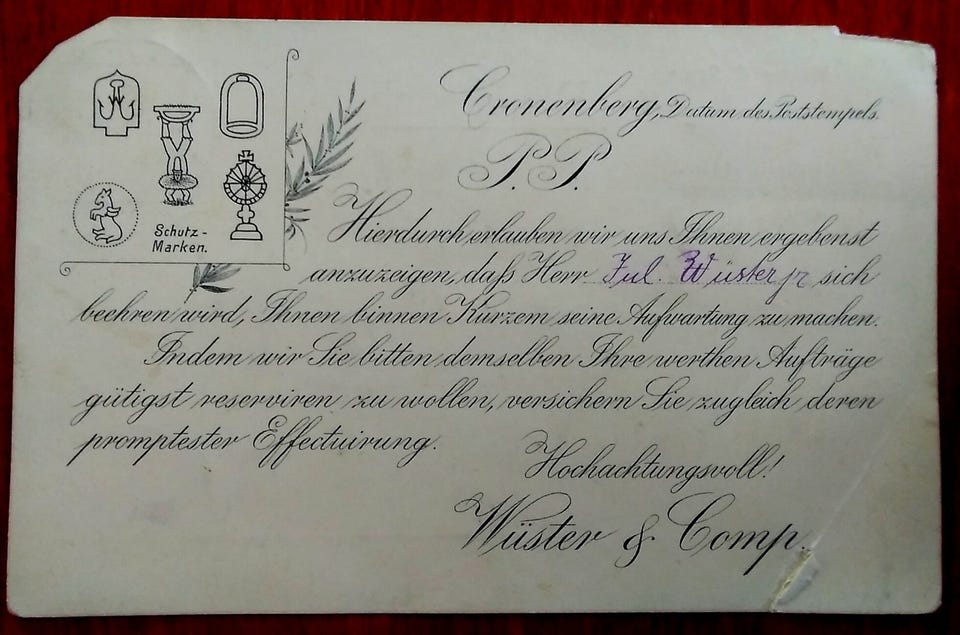 Schutz-
Marken.
Cronenberg, Datum des Poststempels.
P. P.
Hierdurch erlauben wir uns Ihnen ergebenst
anzuzeigen, daß Herr Jul. Wüster jr sich
beehren wird, Ihnen binnen Kurzem seine Aufwartung zu machen.
Indem wir Sie bitten demselben Ihre werthen Aufträge
gütigst reserviren zu wollen, versichern Sie zugleich deren
promptester Effectuirung.
Hochachtungsvoll!
Wüster & Comp.